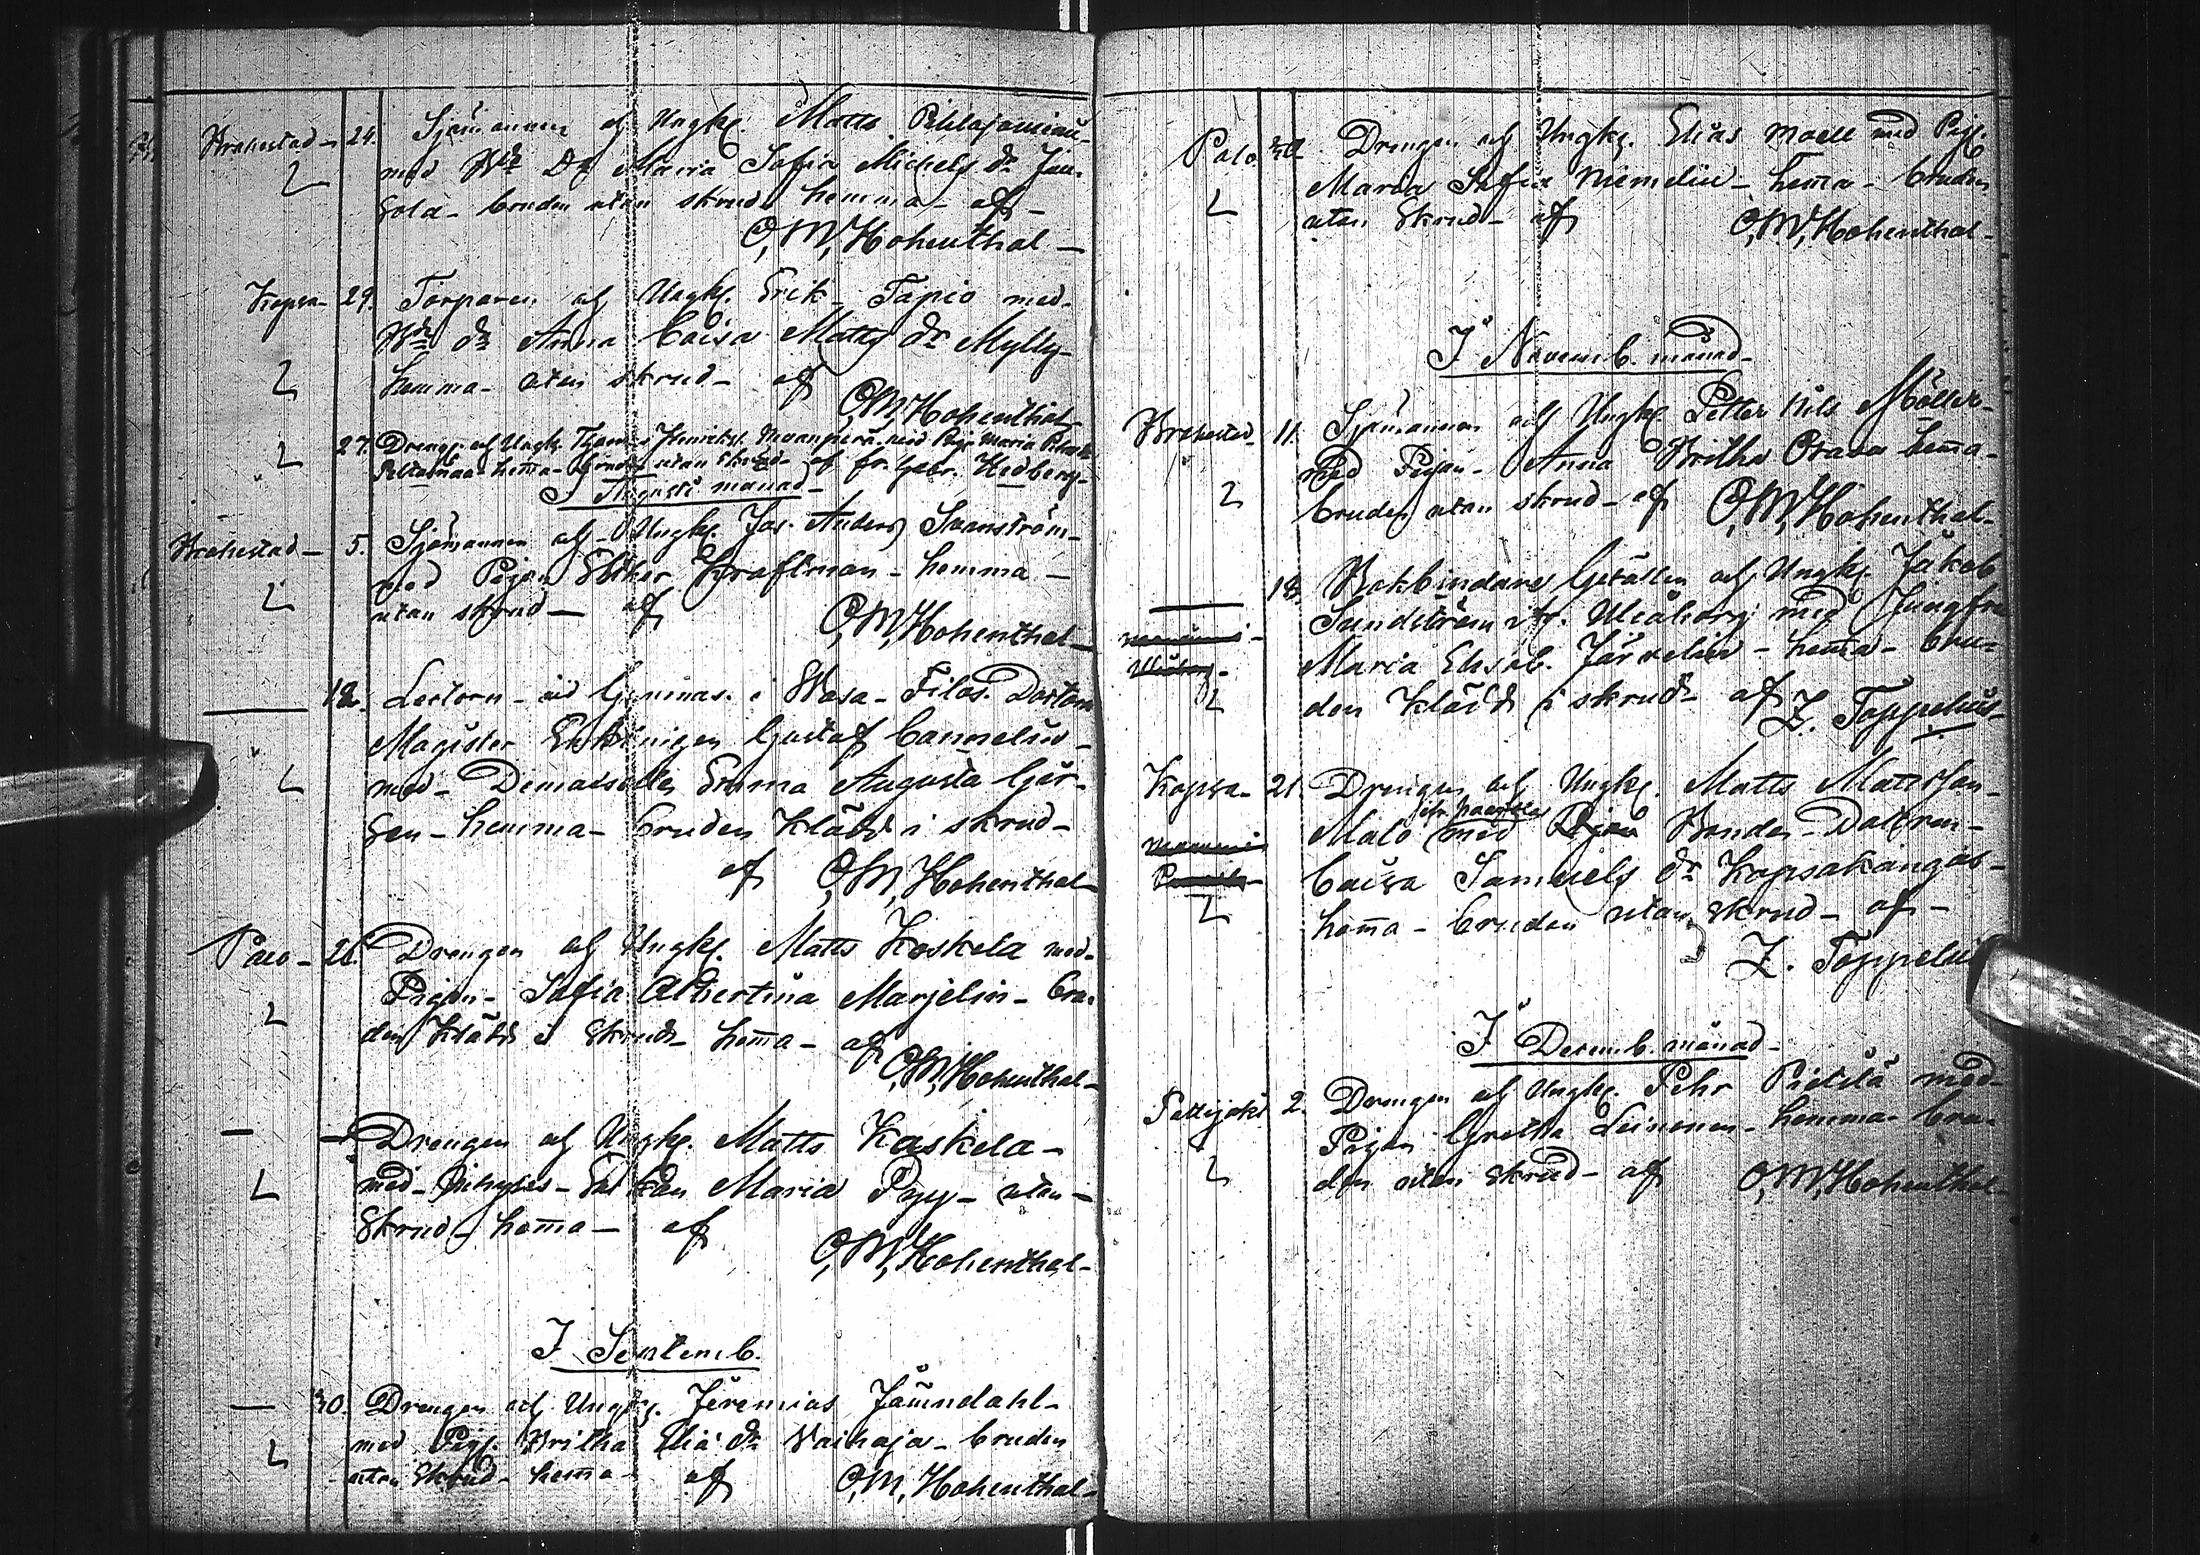 Brahestad - 24. Sjömannen o/ Ungk. Matts Pihlajamau-
med Wde Dr Maria Sofia Michels dr Jun-
gola - bruden utan skrud hemma - af -
O, M, Hohenthal -
Kopsa - 29. Torparen o/ Ungk. Erik Tapio med
Wde dr Anna Caisa Matts dr Mylly-
hemma - utan skrud - af
O, M, Hohenthal
27. Dreng. o/ Ungk. Henriks. med Pig. Maria
hema - bruden utan skrud - af hr. Gabr. Hedberg -
I Augusti månad -
Brahestad - 5. Sjömannen o/ Ungk. Joh. Anders Svanström -
med Pigan Esther Kraftman - hemma -
utan skrud - af
O, M, Hohenthal -
12. Lectorn - vid Gymnas. i Wasa - Filos. Doctorn
Magister Gustaf Cannelin -
med - Demoiselle Emma Augusta Ger-
gen - hemma - bruden klädd i skrud -
af O, M, Hohenthal -
Palo - 26. Drengen o/ Ungk. Matts Koskela med
Pigan - Sofia Albertina Marjelin - bru-
den klädd i skrud - hema - af
O, M, Hohenthal -
— Drengen o/ Ungk. Matts Koskela -
med - Enkan Maria Pyy - utan -
Skrud - hema - af
O, M, Hohenthal -
I Septemb.
— 30. Drengen o/ Ungk. Jeremias Jämndahl -
med Pig. Britha Elia dr Vaihoja - bruden
utan Skrud - hema - af O, M, Hohenthal -
Palo 30. Drengen o/ Ungk. Elias Moell med Pig.
Maria Sofia Niemelin - hema - bruden
utan Skrud - af O, M, Hohenthal -
I Novemb. månad -
Brahestad - 11. Sjömannen o/ Ungk. Petter Nils Möller -
med Pigan - Anna Britha Orava hema -
bruden utan skrud - af O, M, Hohenthal -
18. Bokbindare Gesällen o/ Ungk. Jakob
Sundström fr. Uleåborg med Jungfru
Maria Elisab. Järvelin - hema - bru-
den klädd i skrud - af Z. Toppelius -
Kopsa - 21. Drengen o/ Ungk. Matts Mattsson
Malo med Bonde - Dottren -
Caisa Samuels dr Kopsakangas -
hema - bruden utan skrud - af -
Z. Toppelius
I Decemb. månad -
Pattijoki 2. Drengen o/ Ungk. Pehr Pietilä med
Pigan Gretha Leinonen - hemma - bru-
den utan skrud - af O, M, Hohenthal -